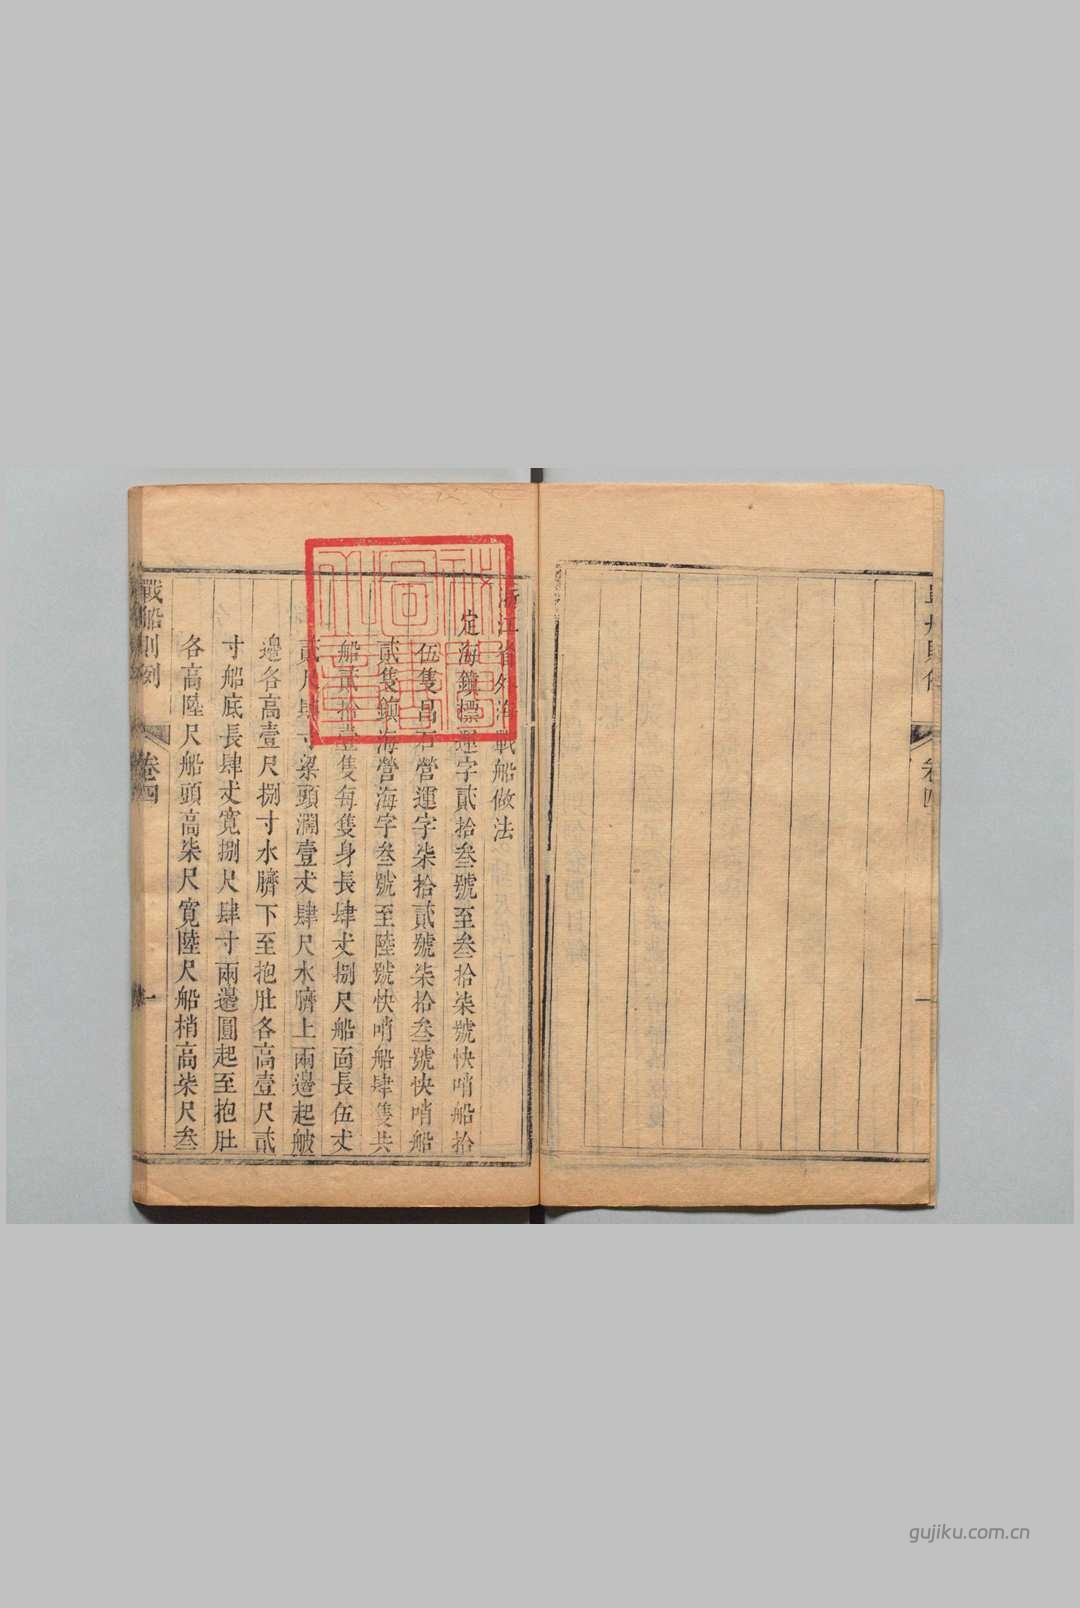 浙江省外海戰船做法
定海鎮標運字貳拾叁號至叁拾柒號快哨船拾
伍隻昌石營運字柒拾貳號柒拾叁號快哨船
貳隻鎮海營海字叁號至陸號快哨船肆隻共
船貳拾壹隻每隻身長肆丈捌尺船面長伍丈
貳尺肆寸梁頭濶壹丈肆尺水臍上兩邊起艕
邊各高壹尺捌寸水臍下至抱肚各高壹尺貳
寸船底長肆丈寬捌尺肆寸兩邊圓起至抱肚
各高陸尺船頭高柒尺寬陸尺船梢高柒尺叁
戰船則例
卷四
一
卷四
一
gujiku.com.cn